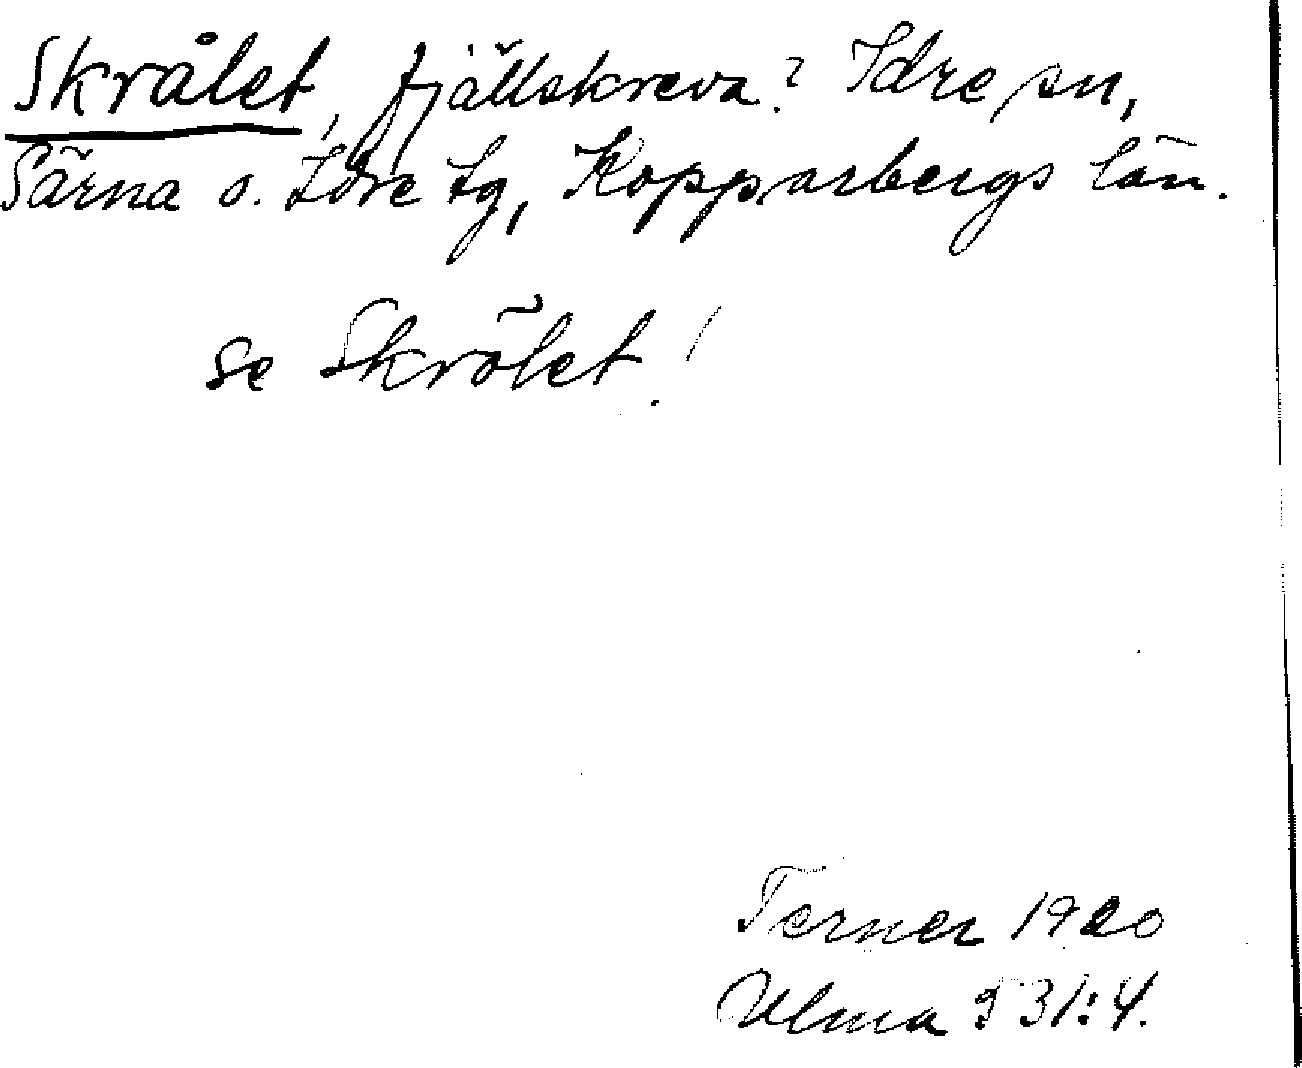 Skrålet, fjällskreva? Idre sn,
Särna o. Idre tg, Kopparbergs län.
se Skrölet!
Terner 1920
Ulma 531:4.